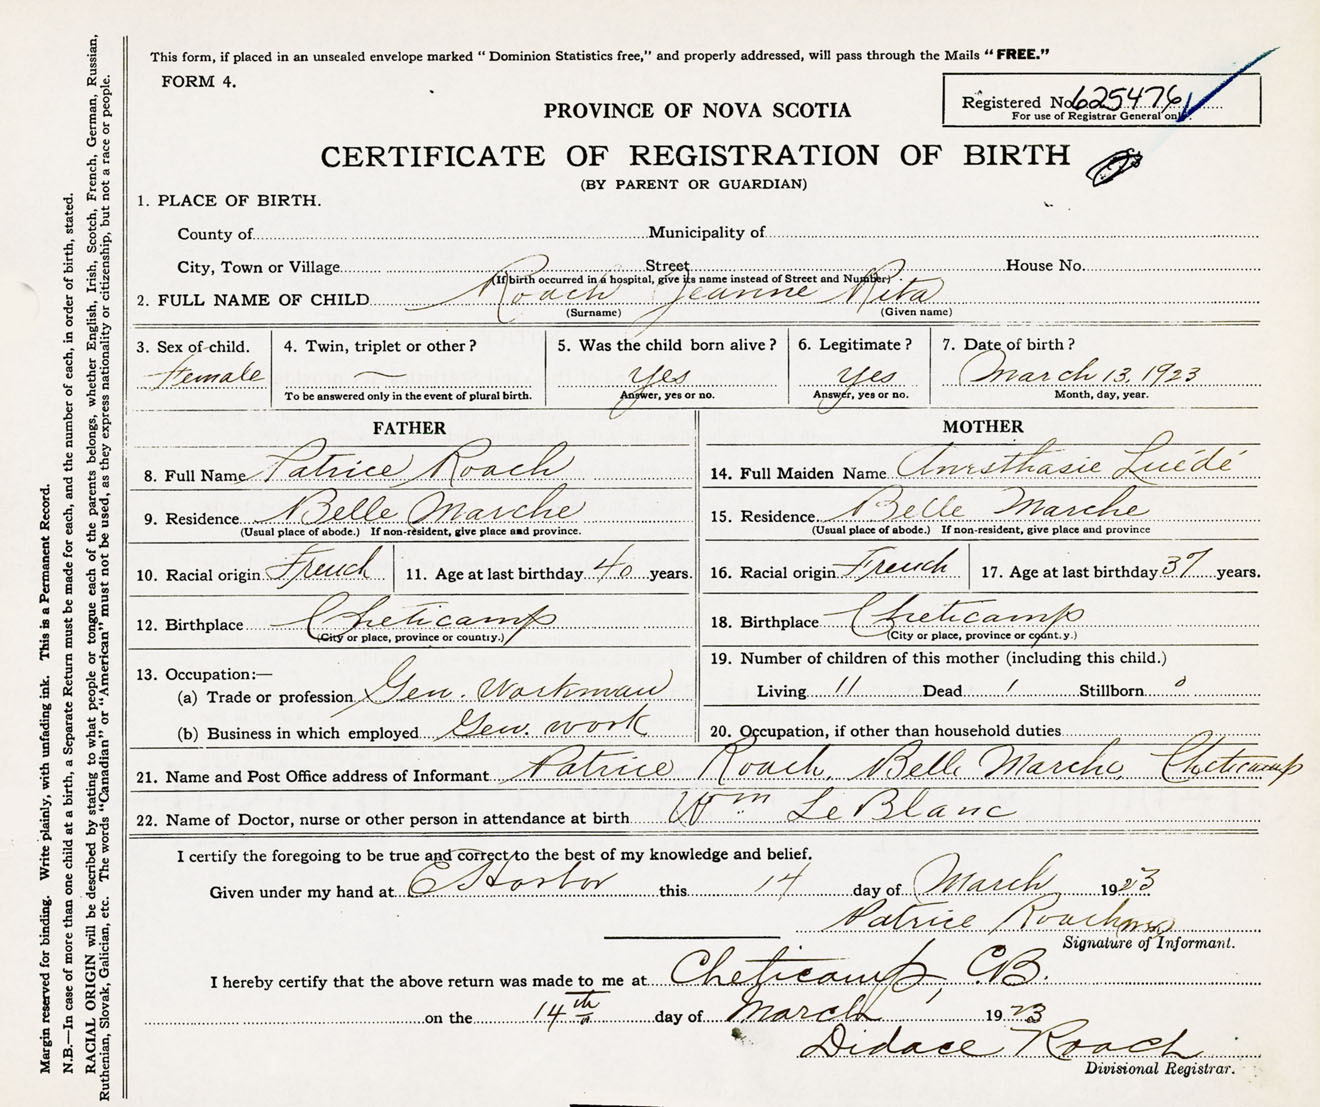 This form, if placed in an unsealed envelope marked "Dominion Statistics free," and properly addressed, will pass through the Mails "FREE."
FORM 4.
Registered No. 625476
For use of Registrar General only.
PROVINCE OF NOVA SCOTIA
CERTIFICATE OF REGISTRATION OF BIRTH
(BY PARENT OR GUARDIAN)
1. PLACE OF BIRTH.
County of Municipality of
City, Town or Village Street House No.
(If birth occurred in a hospital, give its name instead of Street and Number)
2. FULL NAME OF CHILD Roach Jeanne Rita
(Surname) (Given name)
3. Sex of child. 4. Twin, triplet or other? 5. Was the child born alive? 6. Legitimate? 7. Date of birth?
Female — yes yes March 13, 1923
To be answered only in the event of plural birth. Answer, yes or no. Answer, yes or no. Month, day, year.
FATHER
8. Full Name Patrice Roach
9. Residence Belle Marche
(Usual place of abode.) If non-resident, give place and province.
10. Racial origin French 11. Age at last birthday 40 years.
12. Birthplace Cheticamp
(City or place, province or country.)
13. Occupation:—
(a) Trade or profession Gen. Workman
(b) Business in which employed Gen. work
MOTHER
14. Full Maiden Name
15. Residence Belle Marche
(Usual place of abode.) If non-resident, give place and province
16. Racial origin French 17. Age at last birthday 37 years.
18. Birthplace Cheticamp
(City or place, province or country.)
19. Number of children of this mother (including this child.)
Living 11 Dead 1 Stillborn 0
20. Occupation, if other than household duties
21. Name and Post Office address of Informant Patrice Roach, Belle Marche, Cheticamp
22. Name of Doctor, nurse or other person in attendance at birth Wm LeBlanc
I certify the foregoing to be true and correct to the best of my knowledge and belief.
Given under my hand at E Harbor this 14 day of March 1923
Patrice Roach
Signature of Informant.
I hereby certify that the above return was made to me at Cheticamp, C.B.
on the 14th day of March 1923
Didace Roach
Divisional Registrar.
Margin reserved for binding. Write plainly, with unfading ink. This is a Permanent Record.
N.B.—In case of more than one child at a birth, a Separate Return must be made for each, and the number of each, in order of birth, stated.
RACIAL ORIGIN will be described by stating to what people or tongue each of the parents belongs, whether English, Irish, Scotch, French, German, Russian,
Ruthenian, Slovak, Galician, etc. The words "Canadian" or "American" must not be used, as they express nationality or citizenship, but not a race or people.